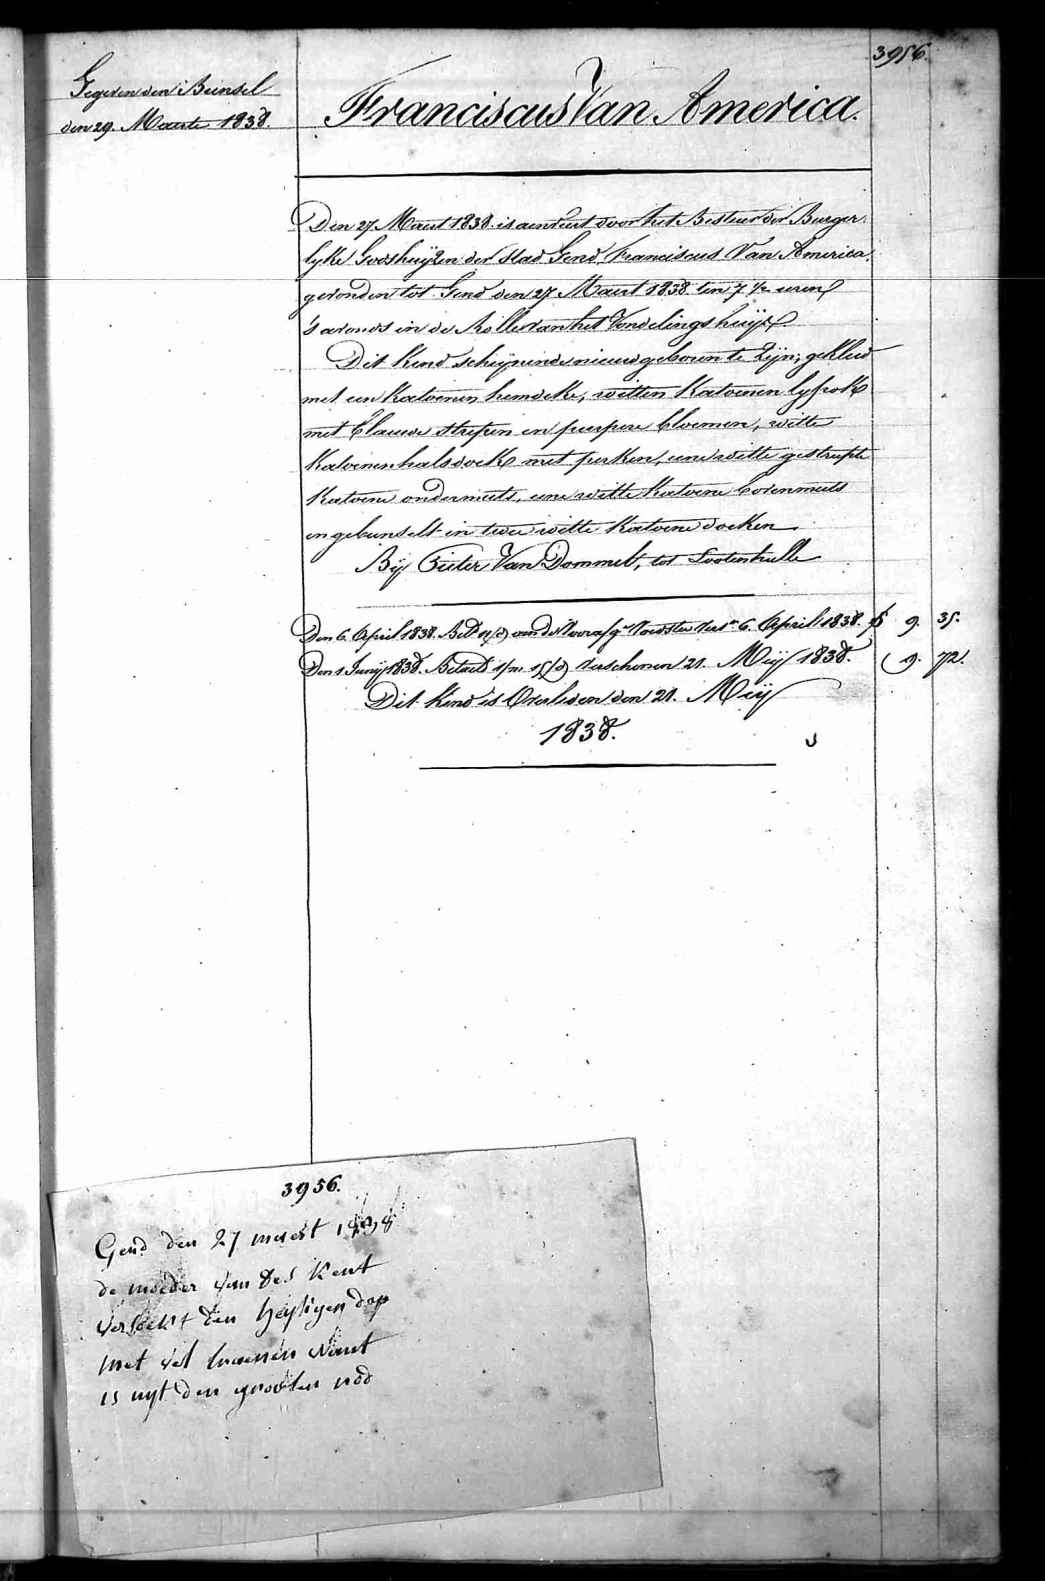 3956.
Gegeven den Bunsel
den 29. Maerte 1838.
Franciscus Van America.
Den 27 Maert 1838. is aenveert door het Bestuer der Burger-
lyke Godshuijzen der stad Gend, Franciscus Van America,
gevonden tot Gend den 27 Maert 1838 ten 7 1/2 uren
's avonds in de Rolle van het Vondelings huijs
Dit Kind schijnende nieuwgeboren te zijn; gekleed
met een Katoenen hemdeke, witten Katoenen lyfrok
met blauwe strepen en purpere bloemen, witte
Katoenen halsdoek met perken, eene witte gestreepte
Katoene ondermuts, eene witte Katoene bovenmuts
en gebunselt in twee witte Katoene doeken.
Bij Pieter Van Dommel, tot Lootenhulle
Den 6. April 1838. Bet. van de 6. April 1838. 9. 35.
Den 1 Junij 1838. Betaelt verschenen 21. Meij 1838. 9. 72.
Dit Kind is Overleden den 21. Meij
1838.
3956.
Gend den 27 maert 1838
de moeder van des Kent
verseekt den heyligen dop
met vel traenen want
is uyt den grooten nod